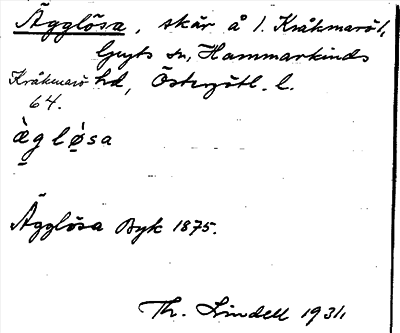 Ägglösa, skär å l. Kråkmaröl,
Gryts sn, Hammarkinds
Kråkmarö hd, Östergötl. l.
64.
ä̀glö̀sa
Ägglösa Byk 1875.
Th. Lindell 1931